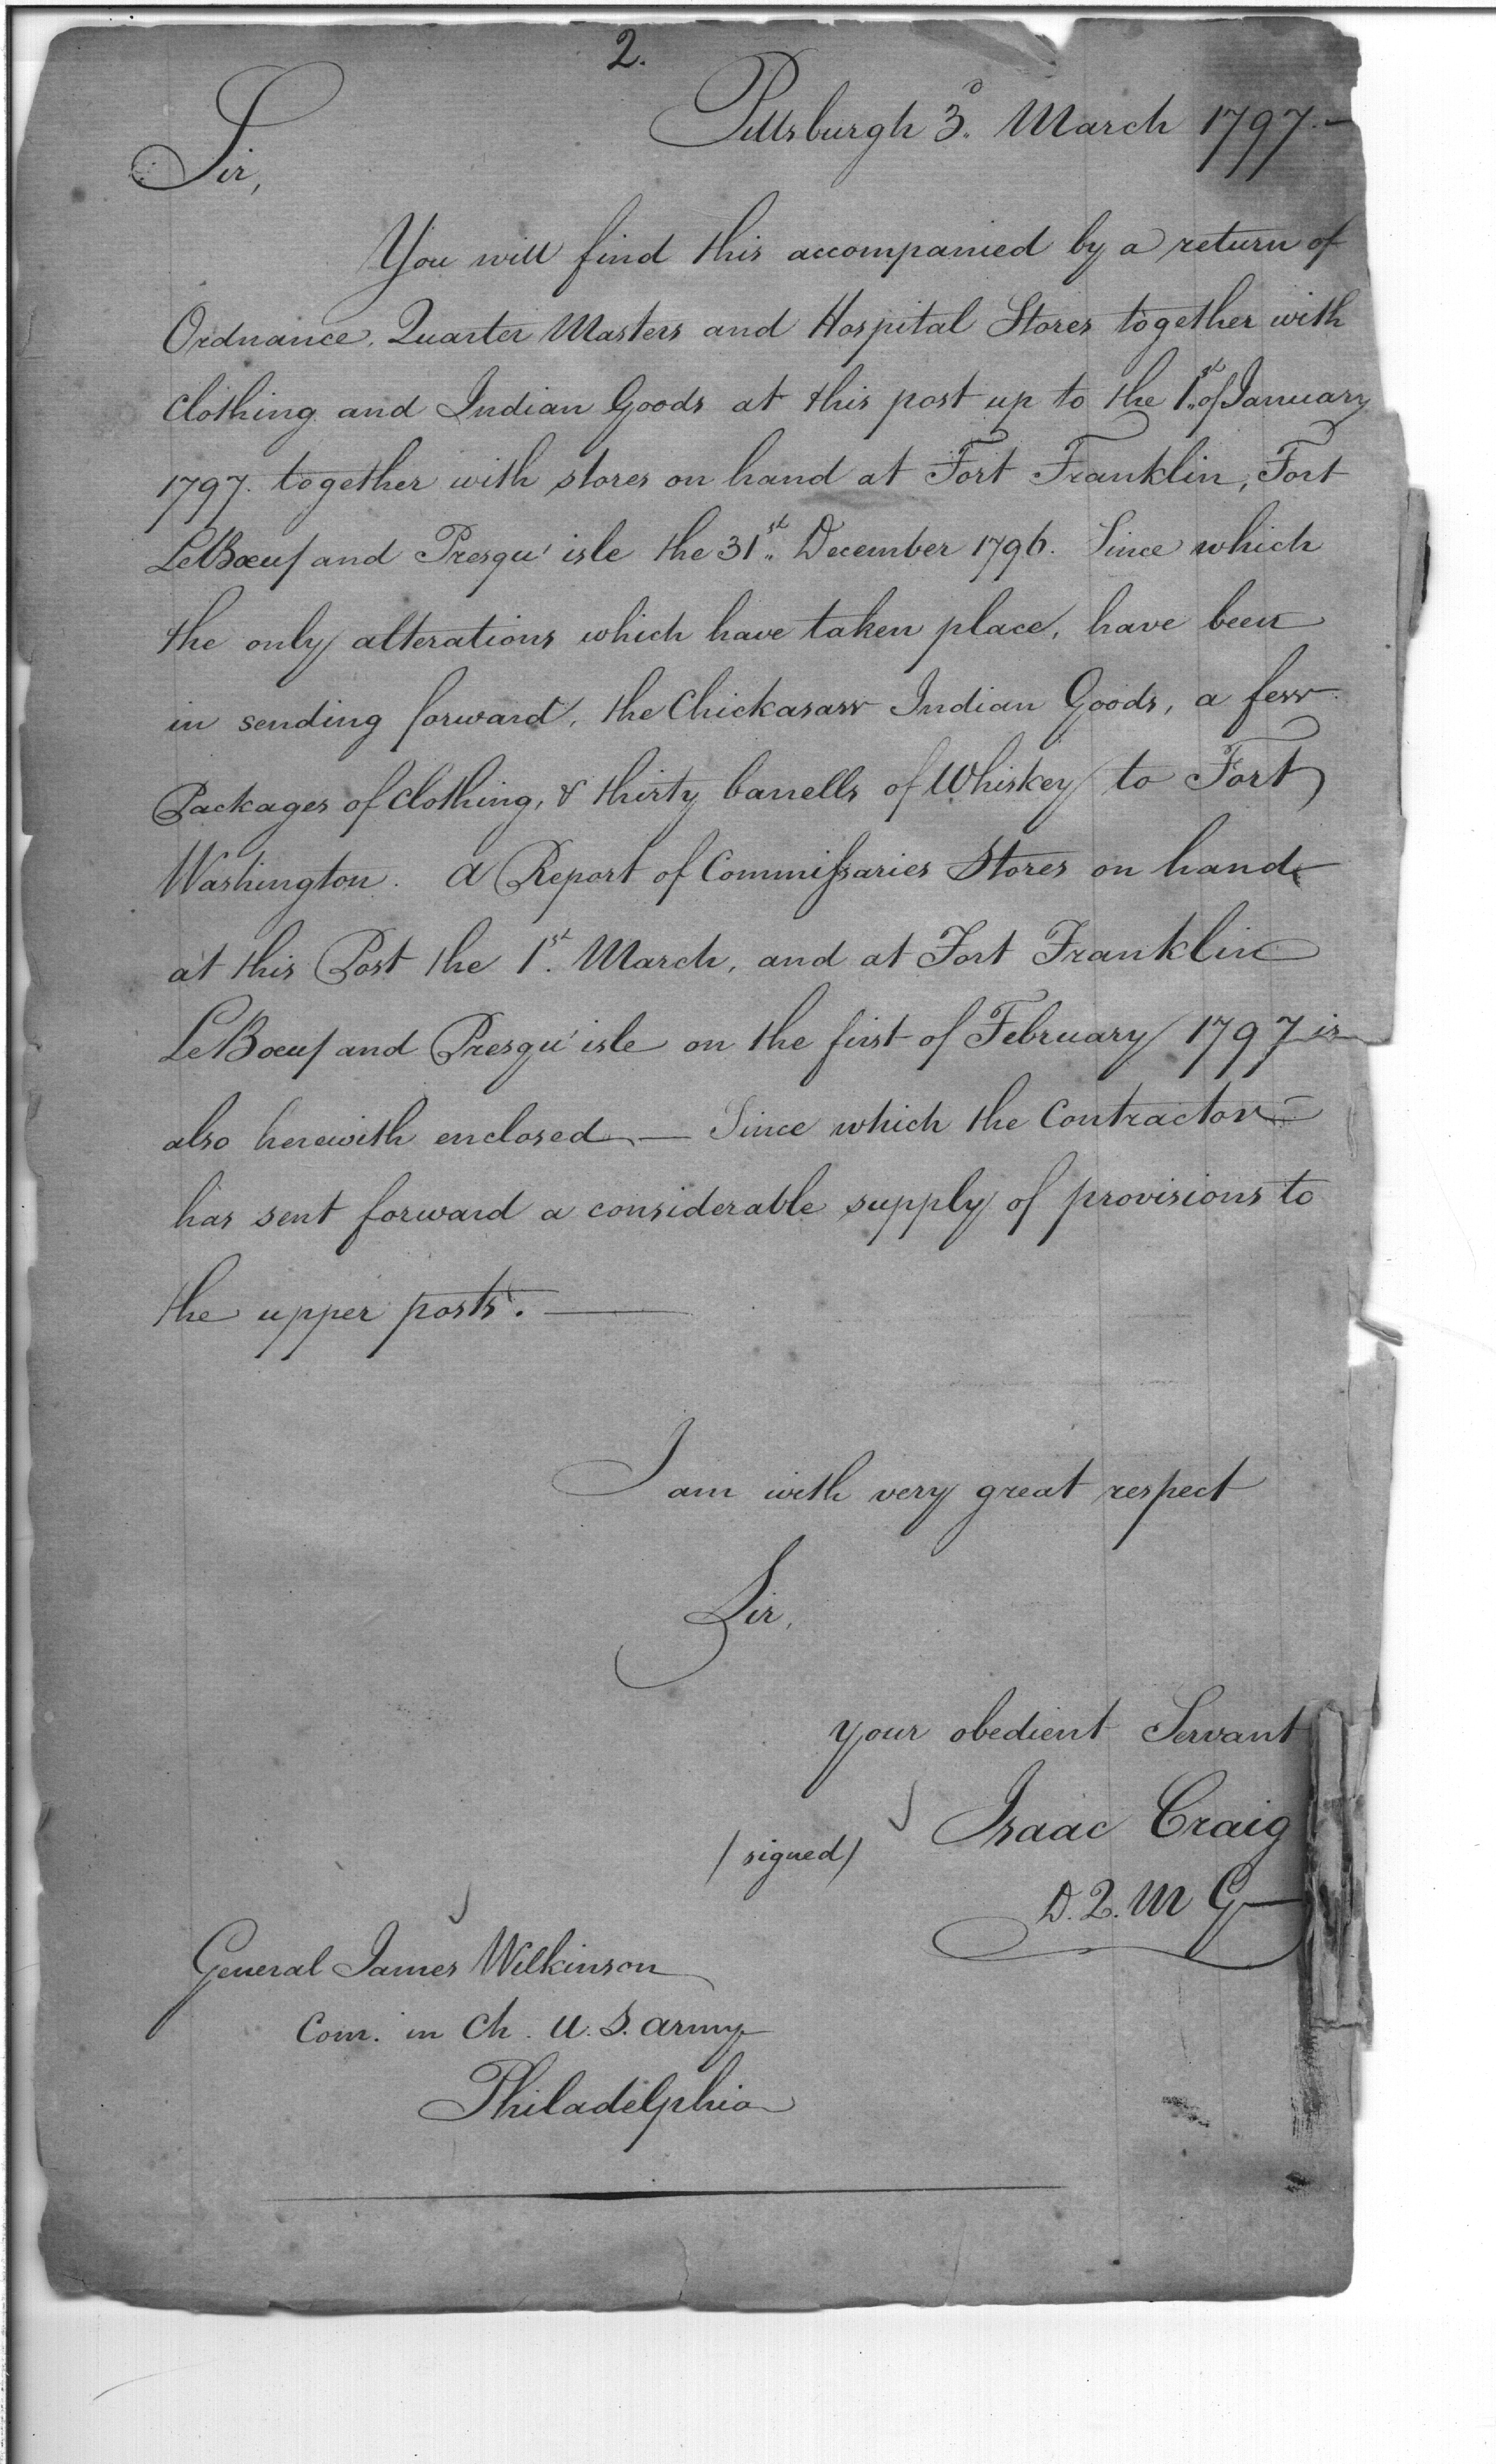 2.
Pittsburgh 3d. March 1797.—
Sir,
You will find this accompanied by a return of
Ordnance, Quarter Masters and Hospital Stores together with
Clothing and Indian Goods at this post up to the 1st. of January
1797. together with stores on hand at Fort Franklin, Fort
LeBœuf and Presqu' isle the 31st. December 1796. Since which
the only alterations which have taken place, have been
in sending forward, the Chickasaw Indian Goods, a few
Packages of Clothing, & thirty barrells of Whiskey to Fort
Washington. A Report of Commissaries Stores on hand
at this Post the 1st. March, and at Fort Franklin
LeBœuf and Presqu' isle on the first of February 1797 is
also herewith enclosed — Since which the Contractor
has sent forward a considerable supply of provisions to
the upper posts. —
I am with very great respect
Sir,
your obedient Servant
/signed/ Isaac Craig
D. Q. M G
General James Wilkinson
Com. in Ch. U. S. Army
Philadelphia